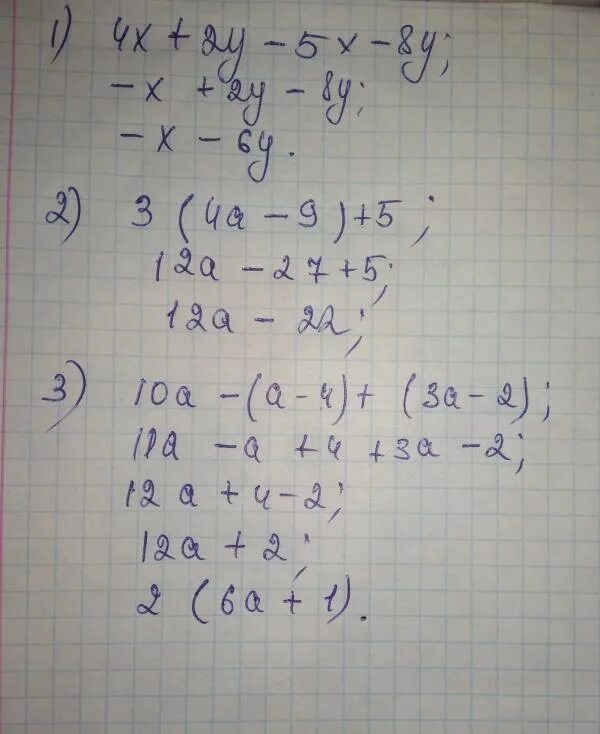 1) 4x + 2y - 5x - 8y;
-x + 2y - 8y;
-x - 6y.
2) 3 (4a - 9) + 5;
12a - 27 + 5;
12a - 22;
3) 10a - (a - 4) + (3a - 2);
10a - a + 4 + 3a - 2;
12a + 4 - 2;
12a + 2;
2 (6a + 1).